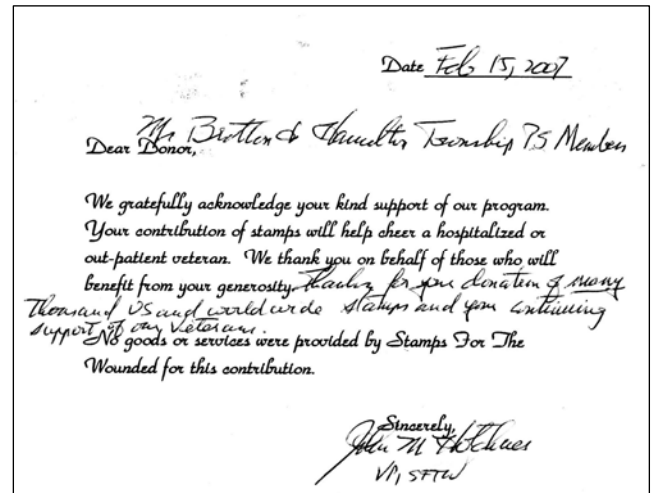 Date Feb 15, 2007
Mr Bratton & Hamilton Township PS Members
Dear Donor,
We gratefully acknowledge your kind support of our program.
Your contribution of stamps will help cheer a hospitalized or
out-patient veteran. We thank you on behalf of those who will
benefit from your generosity. Thanks for your donation of many
thousand US and worldwide stamps and your continuing
support of our Veterans.
No goods or services were provided by Stamps For The
Wounded for this contribution.
Sincerely,
John M
VP, SFTW